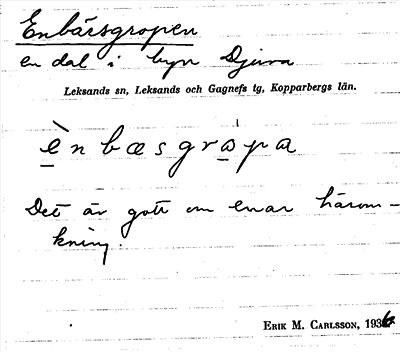 Enbärsgropen
en dal i byn Djura
Leksands sn, Leksands och Gagnefs tg, Kopparbergs län.
ènbæsgrapa
Det är gott om enar härom-
kring.
ERIK M. CARLSSON, 1936